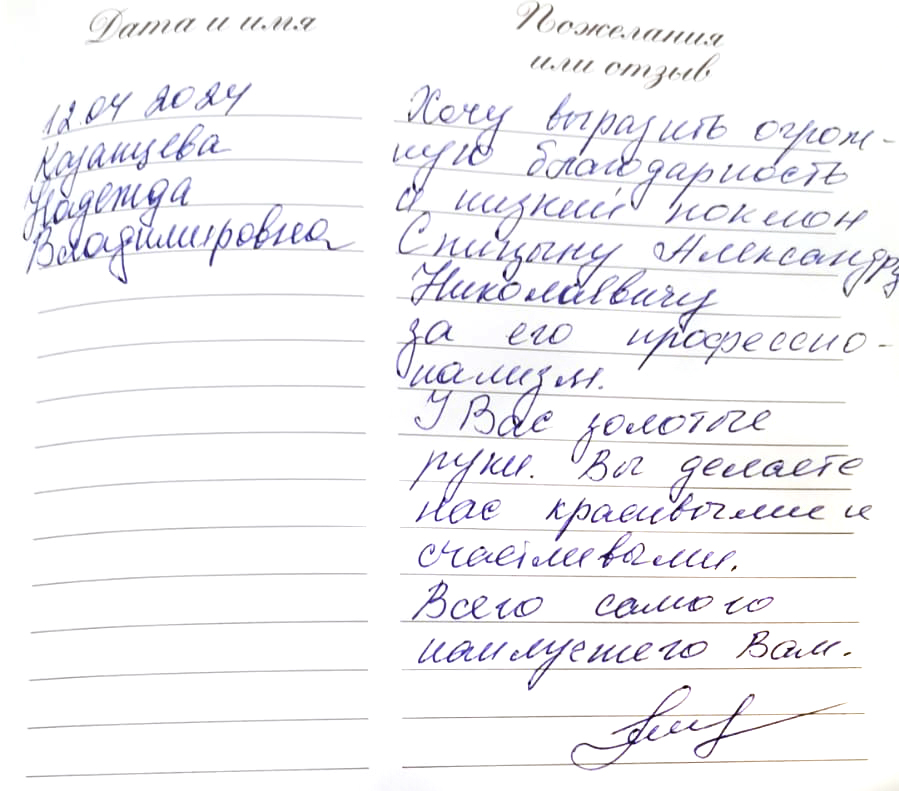 Дата и имя
12.04 2024
Казанцева
Надежда
Владимировна
Пожелания
или отзыв
Хочу выразить огром-
ную благодарность
и низкий поклон
Спицыну Александру
Николаевичу
за его профессио-
нализм.
У Вас золотые
руки. Вы делаете
нас красивыми и
счастливыми.
Всего самого
наилучшего Вам.